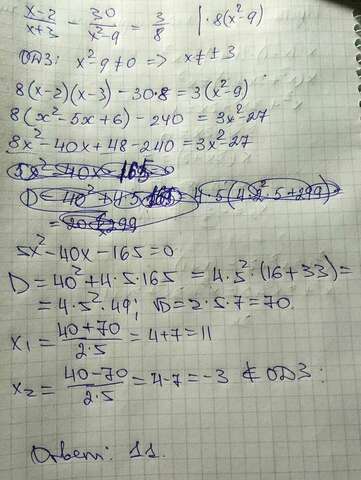 (x-2)/(x+3) - 30/(x²-9) = 3/8 | ·8(x²-9)
ОДЗ: x²-9≠0 => x≠±3
8(x-2)(x-3) - 30·8 = 3(x²-9)
8(x²-5x+6) - 240 = 3x²-27
8x²-40x+48-240 = 3x²-27
5x²-40x-165=0
D=40²+4·5·165 = 4·5²·(16+33)=
=4·5²·49; √D=2·5·7=70.
x₁ = (40+70)/(2·5) = 4+7=11
x₂ = (40-70)/(2·5) = 4-7=-3 ∉ ОДЗ.
Ответ: 11.